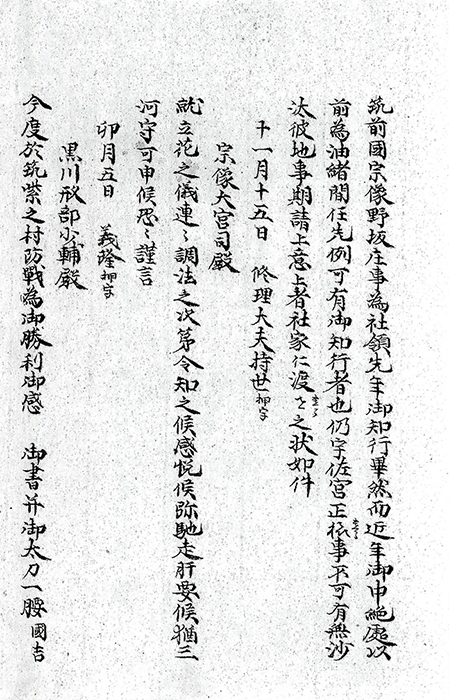 筑前國宗像野坂庄事為社領先年御知行畢然而近年御中絶處以
前為由緒間任先例可有御知行者也仍宇佐宮正様事不可有無沙
汰彼地事期請上意上者社家仁渡之状如件
十一月十五日　修理大夫持世押字
宗像大宮司殿
就立花之儀連〻調法之次第令知之候感悦候弥馳走肝要候猶三
河守可申候恐〻謹言
卯月五日　義隆押字
黒川刑部少輔殿
今度於筑紫之村防戦為御勝利御感　御書并御太刀一腰國吉